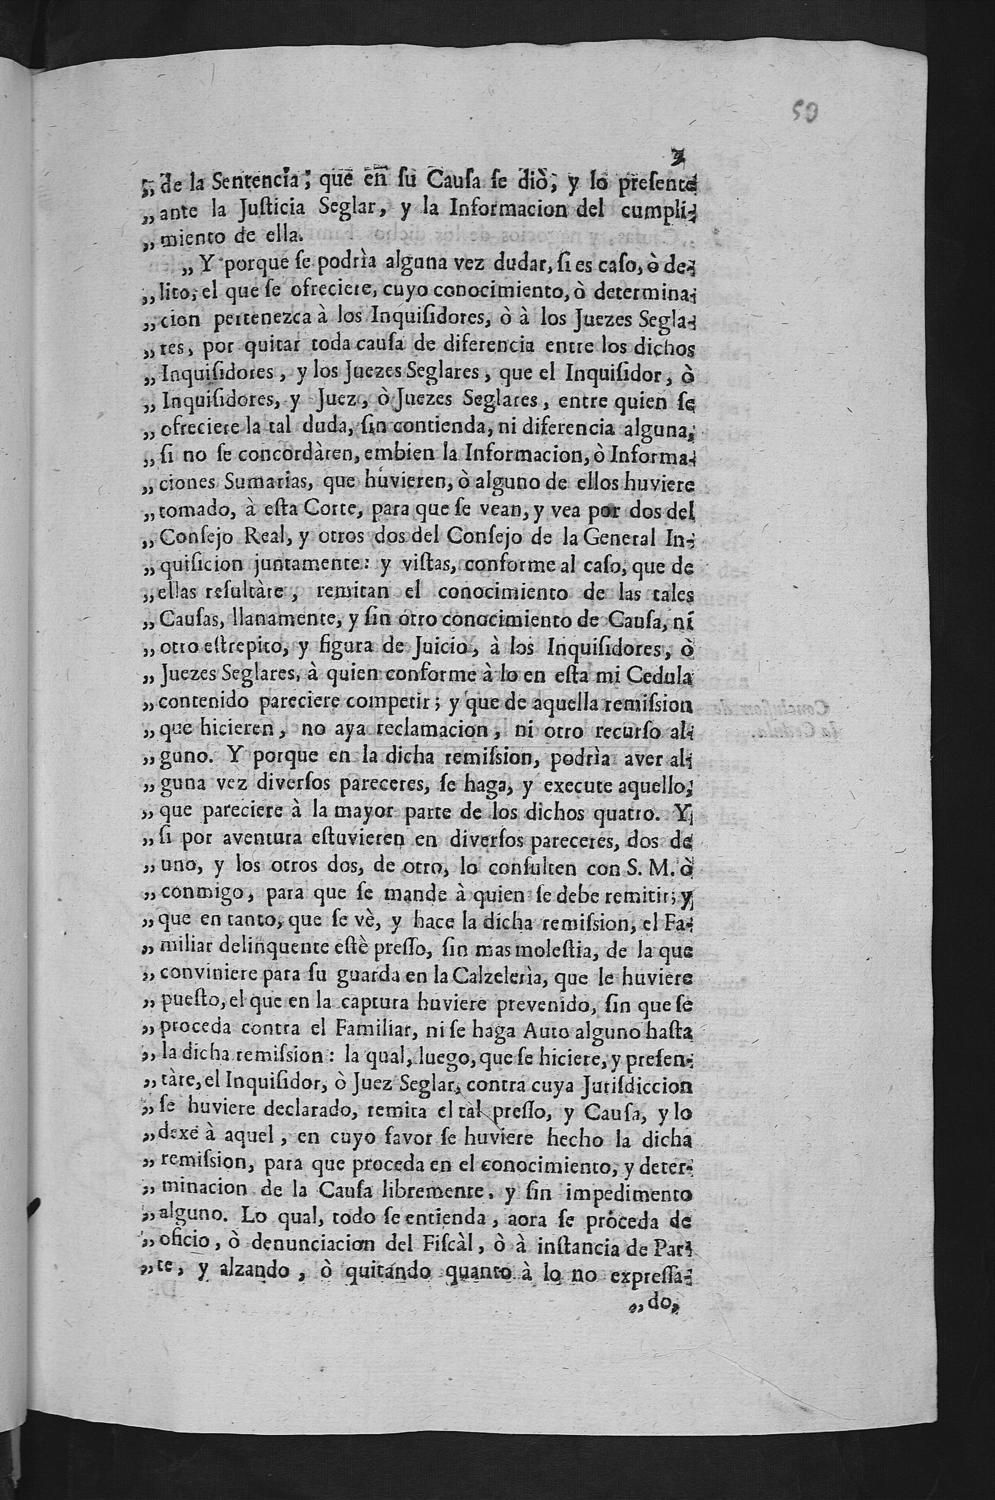 50
3
„ de la Sentencia; que en su Causa se diò; y lo presente
„ ante la Justicia Seglar, y la Informacion del cumpli-
„ miento de ella.
„ Y porque se podrìa alguna vez dudar, si es caso, ò de-
„ lito, el que se ofreciere, cuyo conocimiento, ò determina-
„ cion pertenezca à los Inquisidores, ò à los Juezes Segla-
„ res, por quitar toda causa de diferencia entre los dichos
„ Inquisidores, y los Juezes Seglares, que el Inquisidor, ò
„ Inquisidores, y Juez, ò Juezes Seglares, entre quien se
„ ofreciere la tal duda, sin contienda, ni diferencia alguna,
„ si no se concordàren, embien la Informacion, ò Informa-
„ ciones Sumarias, que huvieren, ò alguno de ellos huviere
„ tomado, à esta Corte, para que se vean, y vea por dos del
„ Consejo Real, y otros dos del Consejo de la General In-
„ quisicion juntamente: y vistas, conforme al caso, que de
„ ellas resultàre, remitan el conocimiento de las tales
„ Causas, llanamente, y sin otro conocimiento de Causa, ni
„ otro estrepito, y figura de Juicio, à los Inquisidores, ò
„ Juezes Seglares, à quien conforme à lo en esta mi Cedula
„ contenido pareciere competir; y que de aquella remission
„ que hicieren, no aya reclamacion, ni otro recurso al-
„ guno. Y porque en la dicha remission, podrìa aver al-
„ guna vez diversos pareceres, se haga, y execute aquello,
„ que pareciere à la mayor parte de los dichos quatro. Y,
„ si por aventura estuvieren en diversos pareceres, dos de
„ uno, y los otros dos, de otro, lo consulten con S. M. ò
„ conmigo, para que se mande à quien se debe remitir; y,
„ que en tanto, que se vè, y hace la dicha remission, el Fa-
„ miliar delinquente estè presso, sin mas molestia, de la que
„ conviniere para su guarda en la Calzelerìa, que le huviere
„ puesto, el que en la captura huviere prevenido, sin que se
„ proceda contra el Familiar, ni se haga Auto alguno hasta
„ la dicha remission: la qual, luego, que se hiciere, y presen-
„ tàre, el Inquisidor, ò Juez Seglar, contra cuya Jurisdiccion
„ se huviere declarado, remita el tal presso, y Causa, y lo
„ dexe à aquel, en cuyo favor se huviere hecho la dicha
„ remission, para que proceda en el conocimiento, y deter-
„ minacion de la Causa libremente, y sin impedimento
„ alguno. Lo qual, todo se entienda, aora se próceda de
„ oficio, ò denunciacion del Fiscàl, ò à instancia de Par-
„ te, y alzando, ò quitando quanto à lo no expressa-
„ do,